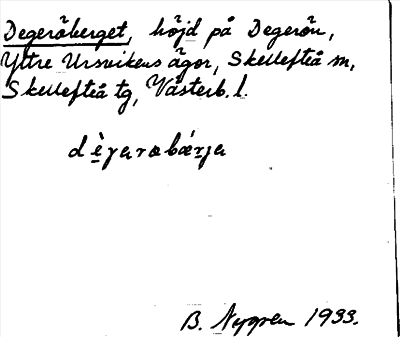 Degeröberget, höjd på Degerön,
Yttre Ursvikens ägor, Skellefteå sn,
Skellefteå tg, Västerb. l.
B. Nygren 1933.